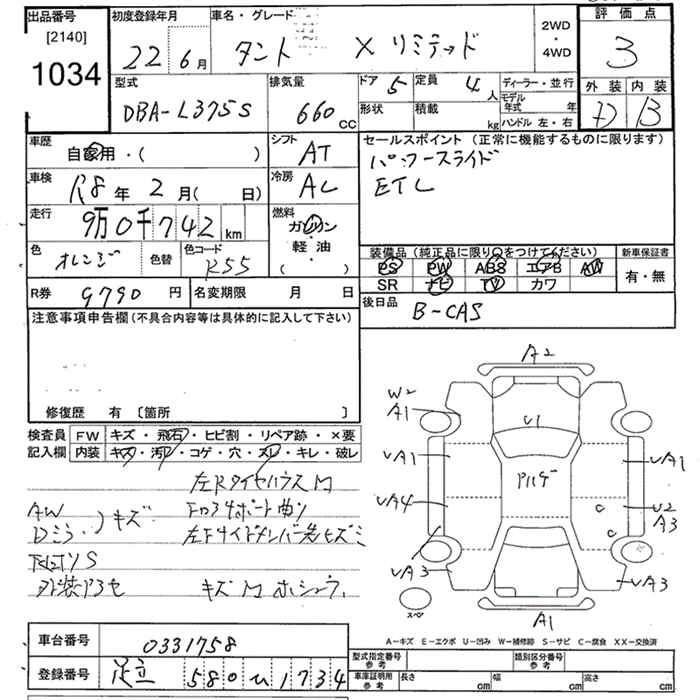 出品番号
[2140]
1034
初度登録年月
22年6月
車名・グレード
タント X リミテッド
2WD
・
4WD
評価点
3
外装 内装
D B
型式
DBA-L375S
排気量
660 cc
ドア 5
定員 4人
形状
積載 kg
ディーラー・並行
モデル年式 年
ハンドル 左・右
車歴
自家用・( )
シフト
AT
車検
R8年 2月( 日)
冷房
AC
走行
9万0千742 km
燃料
ガソリン
軽・油
・( )
色
オレンジ
色替
色コード
R55
R券 9790 円
名変期限 月 日
セールスポイント (正常に機能するものに限ります)
パワースライド
ETC
装備品 (純正品に限り○をつけてください)
PS PW ABS エアB AW
SR ナビ TV カワ
新車保証書
有・無
後日品
B-CAS
注意事項申告欄(不具合内容等は具体的に記入して下さい)
修復歴 有 [箇所 ]
検査員記入欄
FW キズ・飛石・ヒビ割・リペア跡・×要
内装 キズ・汚れ・コゲ・穴・スレ・キレ・破レ
左Rタイヤハウス M
AW
Dミラー 〉キズ
外装
キズ M
A2
W2
A1
U1
UA1
UA1
アルゲ
UA4
C
U2
A3
C
UA3
UA3
スペア
A1
A－キズ E－エクボ U－凹み W－補修跡 S－サビ C－腐食 XX－交換済
車台番号 0331758
登録番号 足立 580 い 1734
型式指定番号
参考
類別区分番号
参考
車庫証明用
参考
長さ cm
幅 cm
高さ cm